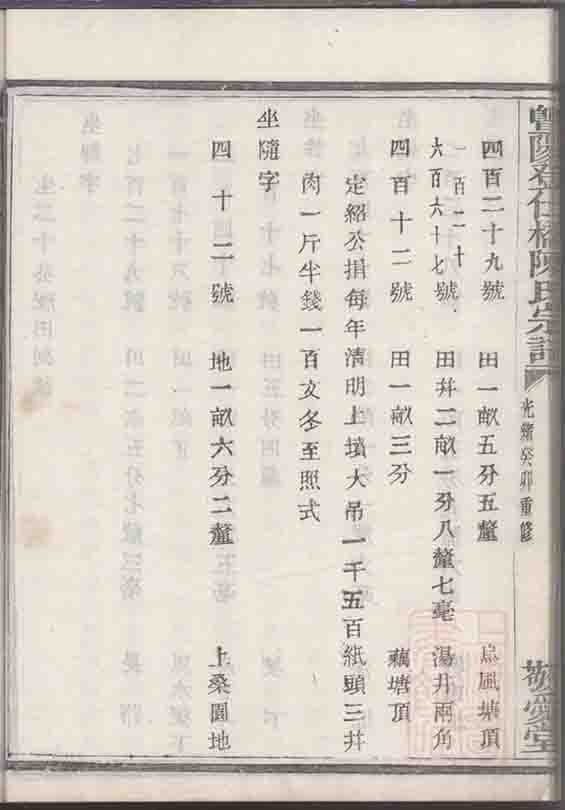 暨陽孝仁格陳氏宗譜
光緒癸卯重修
敬愛堂
四百二十九號 田一畝五分五釐 烏風塘頂
一百二十
六百六十七號 田幷二畝一分八釐七毫 湯井兩角
四百十二號 田一畝三分 藕塘頂
定紹公捐每年清明上墳大吊一千五百紙頭三幷
肉一斤半錢一百文冬至照式
坐隨字
四十二號 地一畝六分二釐 上桑園地